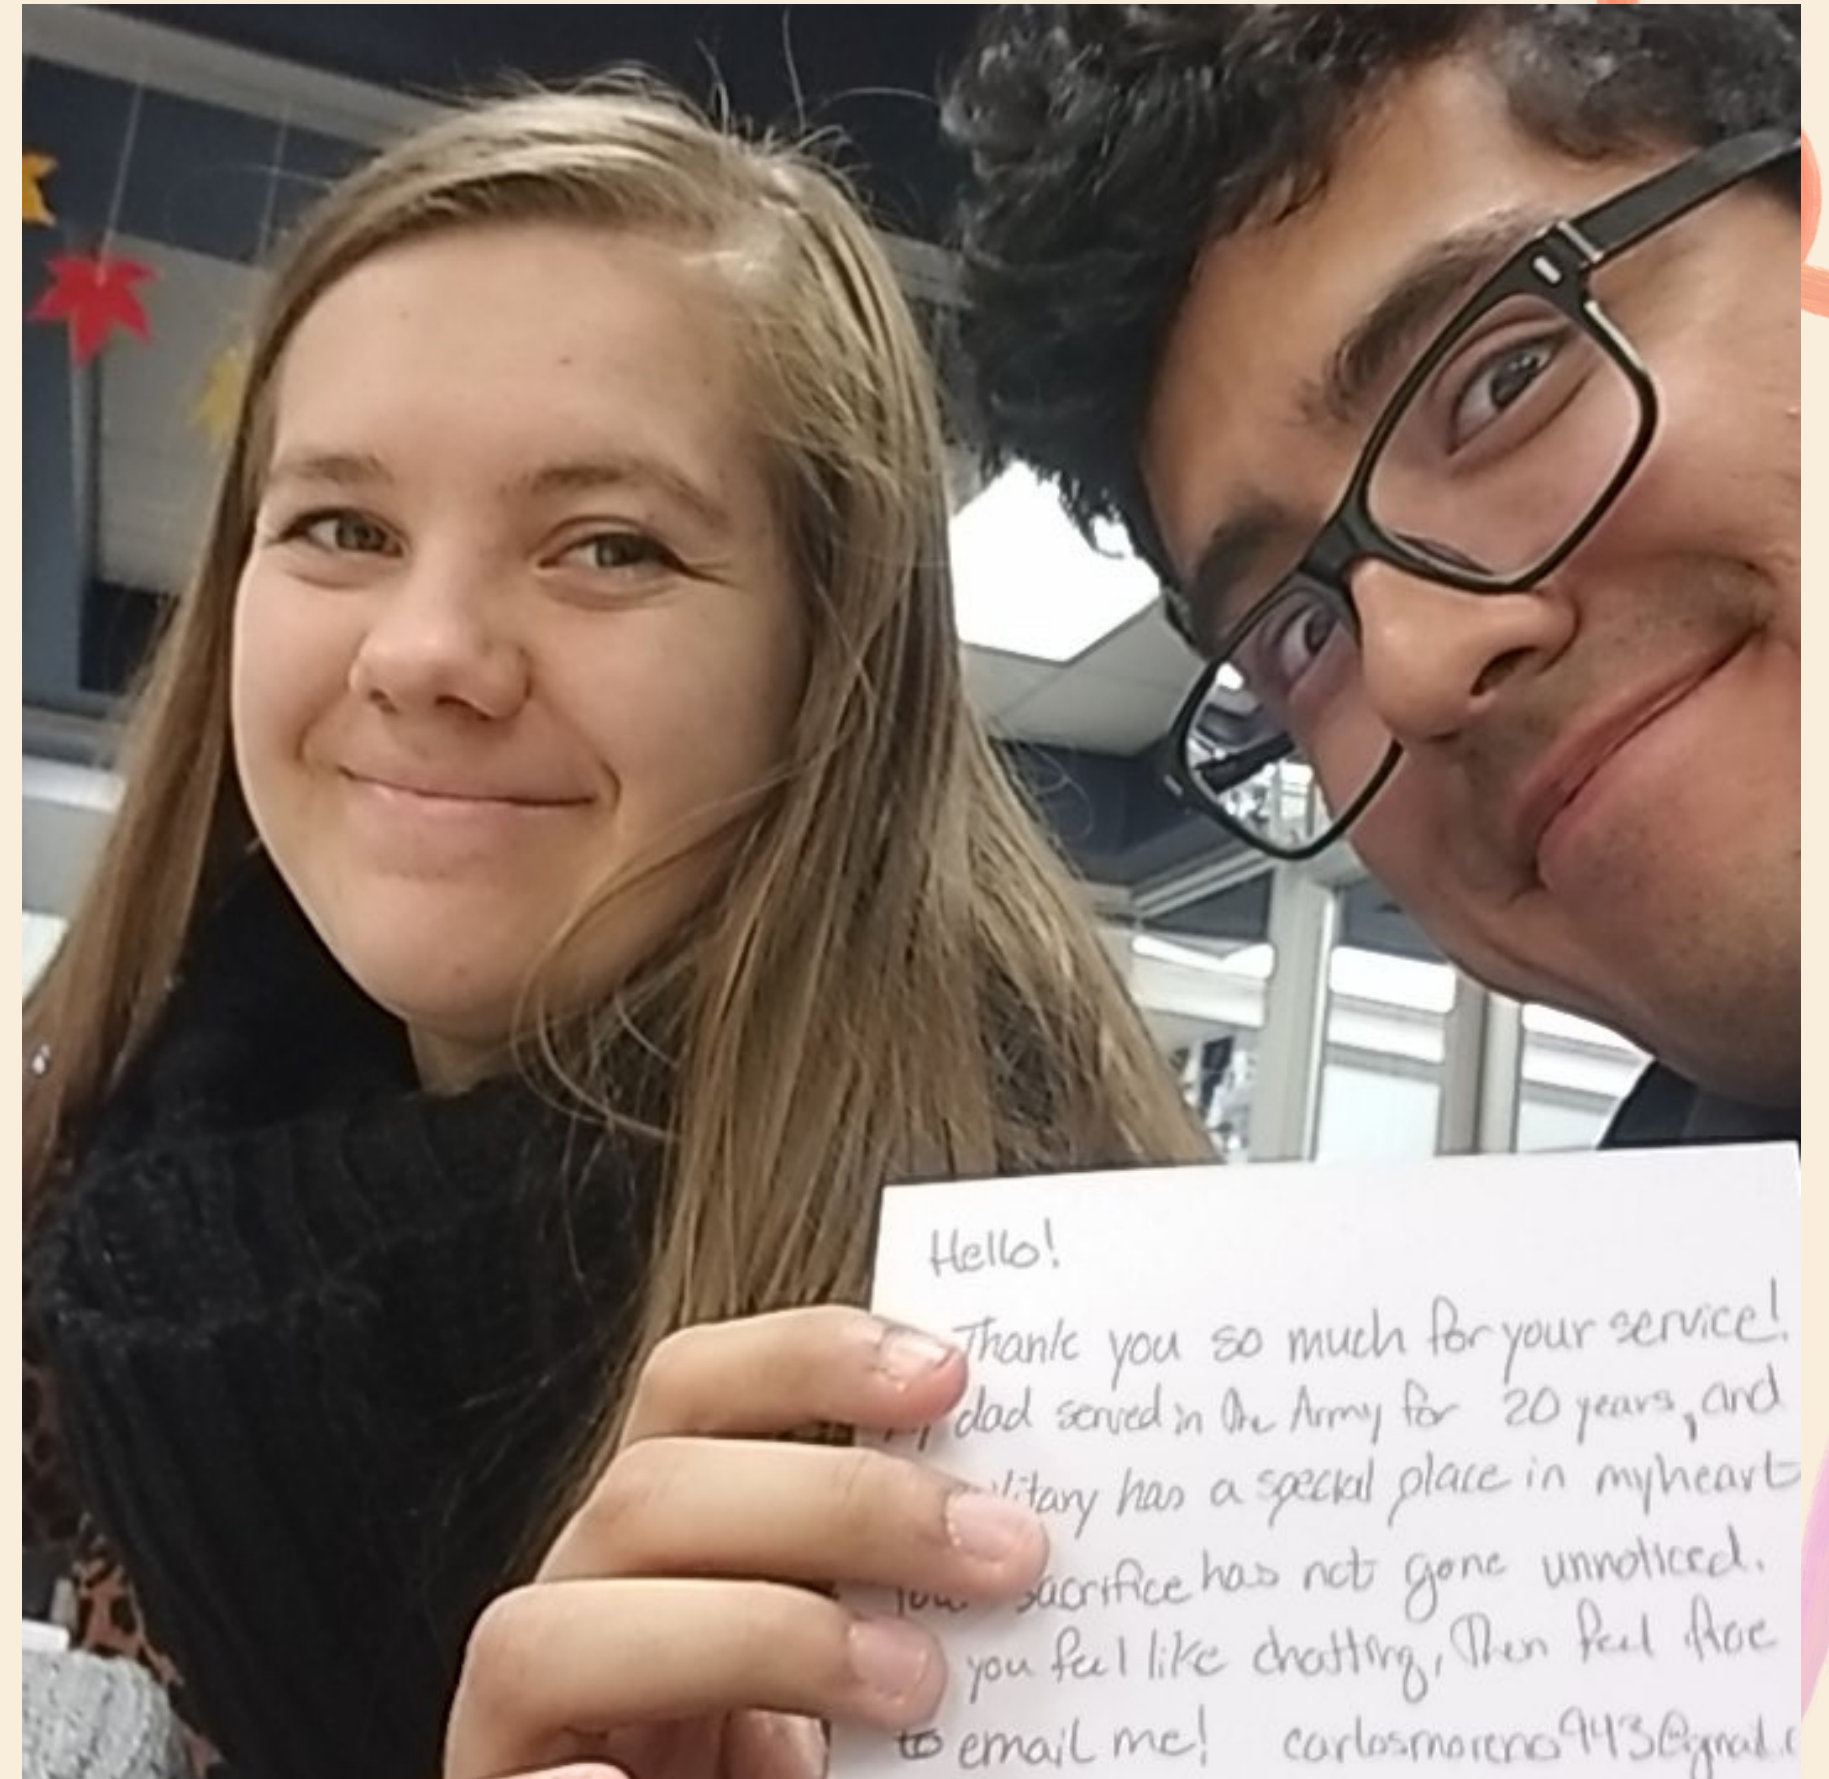 Hello!
Thank you so much for your service!
dad served in the Army for 20 years, and
has a special place in my heart
sacrifice has not gone unnoticed.
you feel like chatting, then feel free
to email me! carlosmoreno943@gmail.c